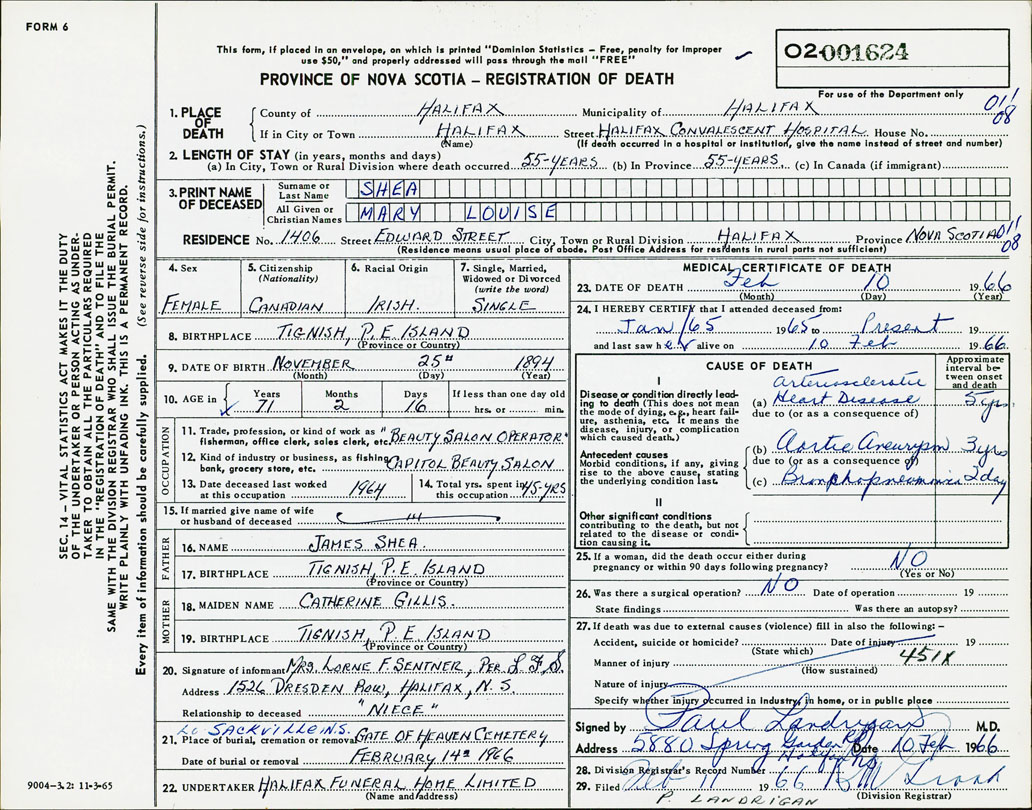 FORM 6
This form, if placed in an envelope, on which is printed "Dominion Statistics – Free, penalty for improper
use $50," and properly addressed will pass through the mail "FREE"
02-001624
PROVINCE OF NOVA SCOTIA – REGISTRATION OF DEATH
For use of the Department only
1. PLACE OF DEATH
County of HALIFAX Municipality of HALIFAX 011 08
If in City or Town HALIFAX Street HALIFAX CONVALESCENT HOSPITAL House No.
(Name) (If death occurred in a hospital or institution, give the name instead of street and number)
2. LENGTH OF STAY (in years, months and days)
(a) In City, Town or Rural Division where death occurred 55-YEARS (b) In Province 55-YEARS (c) In Canada (if immigrant)
3. PRINT NAME OF DECEASED
Surname or Last Name SHEA
All Given or Christian Names MARY LOUISE
RESIDENCE No. 1406 Street EDWARD STREET City, Town or Rural Division HALIFAX Province NOVA SCOTIA 011 08
(Residence means usual place of abode. Post Office Address for residents in rural parts not sufficient)
4. Sex
FEMALE
5. Citizenship (Nationality)
CANADIAN
6. Racial Origin
IRISH.
7. Single, Married, Widowed or Divorced (write the word)
SINGLE
8. BIRTHPLACE TIGNISH, P.E. ISLAND
(Province or Country)
9. DATE OF BIRTH NOVEMBER 25th 1894
(Month) (Day) (Year)
10. AGE in Years 71 Months 2 Days 16 If less than one day old hrs. or min.
OCCUPATION
11. Trade, profession, or kind of work as fisherman, office clerk, sales clerk, etc. "BEAUTY SALON OPERATOR"
12. Kind of industry or business, as fishing, bank, grocery store, etc. CAPITOL BEAUTY SALON
13. Date deceased last worked at this occupation 1964
14. Total yrs. spent in this occupation 45-YRS
15. If married give name of wife or husband of deceased
FATHER
16. NAME JAMES SHEA.
17. BIRTHPLACE TIGNISH, P.E. ISLAND
(Province or Country)
MOTHER
18. MAIDEN NAME CATHERINE GILLIS.
19. BIRTHPLACE TIGNISH, P.E. ISLAND
(Province or Country)
20. Signature of informant MRS. LORNE F. SENTNER, PER. L.F.S.
Address 1526 DRESDEN ROW, HALIFAX, N.S.
Relationship to deceased "NIECE"
LO. SACKVILLE N.S.
21. Place of burial, cremation or removal GATE OF HEAVEN CEMETERY
Date of burial or removal FEBRUARY 14th 1966
22. UNDERTAKER HALIFAX FUNERAL HOME LIMITED
(Name and Address)
MEDICAL CERTIFICATE OF DEATH
23. DATE OF DEATH Feb 10 1966
(Month) (Day) (Year)
24. I HEREBY CERTIFY that I attended deceased from:
Jan/65 1965 to Present 19
and last saw her alive on 10 Feb 1966
CAUSE OF DEATH
Approximate interval between onset and death
I
Disease or condition directly leading to death (This does not mean the mode of dying, e.g., heart failure, asthenia, etc. It means the disease, injury, or complication which caused death.)
(a) Arteriosclerotic Heart Disease 5 yrs
due to (or as a consequence of)
Antecedent causes
Morbid conditions, if any, giving rise to the above cause, stating the underlying condition last.
(b) Aortic Aneurysm 3 yrs
due to (or as a consequence of)
(c) Bronchopneumonia 2 day
II
Other significant conditions
contributing to the death, but not related to the disease or condition causing it.
25. If a woman, did the death occur either during pregnancy or within 90 days following pregnancy? NO
(Yes or No)
26. Was there a surgical operation? NO Date of operation 19
State findings Was there an autopsy?
27. If death was due to external causes (violence) fill in also the following: –
Accident, suicide or homicide? Date of injury 19
(State which)
Manner of injury 451X
(How sustained)
Nature of injury
Specify whether injury occurred in industry, in home, or in public place
Signed by Paul Landrigan M.D.
Address 5880 Spring Garden Rd Halifax Date 10 Feb 1966
28. Division Registrar's Record Number
29. Filed Feb 11 1966
(Division Registrar)
P. LANDRIGAN
SEC. 14 – VITAL STATISTICS ACT MAKES IT THE DUTY
OF THE UNDERTAKER OR PERSON ACTING AS UNDER-
TAKER TO OBTAIN ALL THE PARTICULARS REQUIRED
IN THE "REGISTRATION OF DEATH" AND TO FILE THE
SAME WITH THE DIVISION REGISTRAR WHO SHALL ISSUE THE BURIAL PERMIT.
WRITE PLAINLY WITH UNFADING INK. THIS IS A PERMANENT RECORD.
Every item of information should be carefully supplied. (See reverse side for instructions.)
9004-3.2: 11-3-65